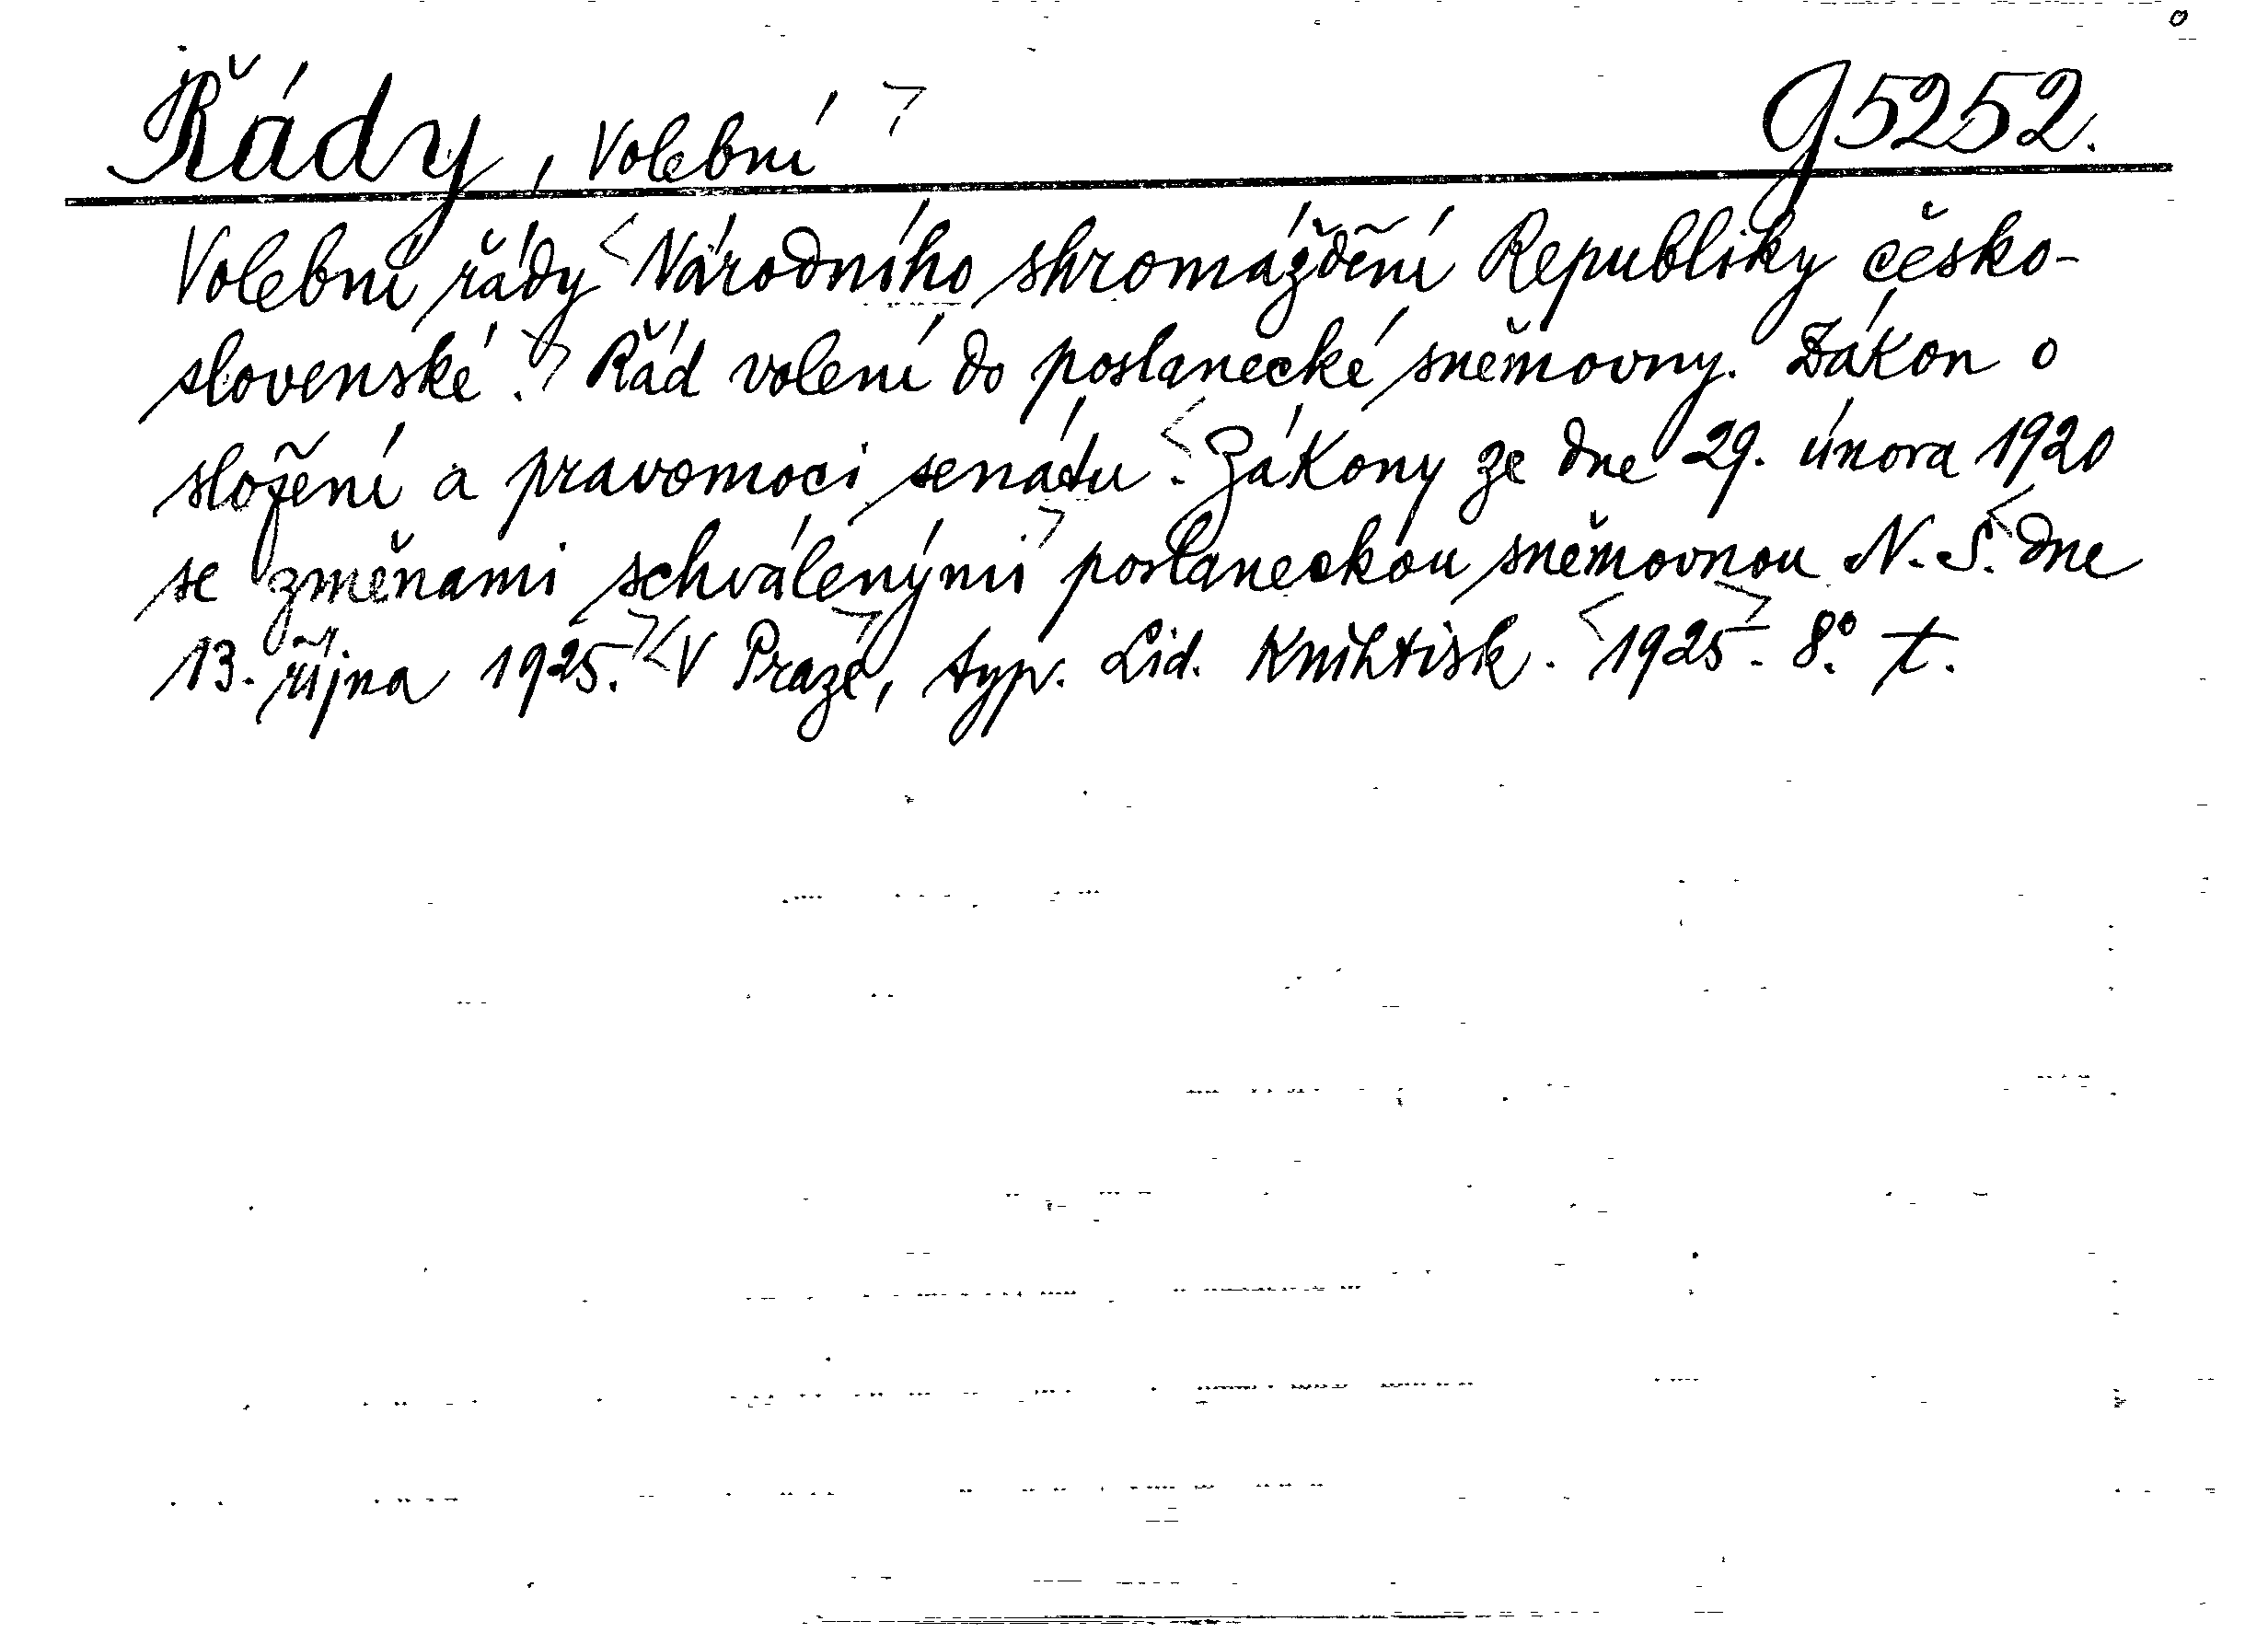 Řády, Volební G 5252.
Volební řády Národního shromáždění Republiky česko-
slovenské. Řád volení do poslanecké sněmovny. Zákon o
složení a pravomoci senátu. Zákony ze dne 29. února 1920
se změnami schválenými poslaneckou sněmovnou N. S. dne
13. října 1925. V Praze, typ. Lid. Knihtisk. 1925. 8.° t.